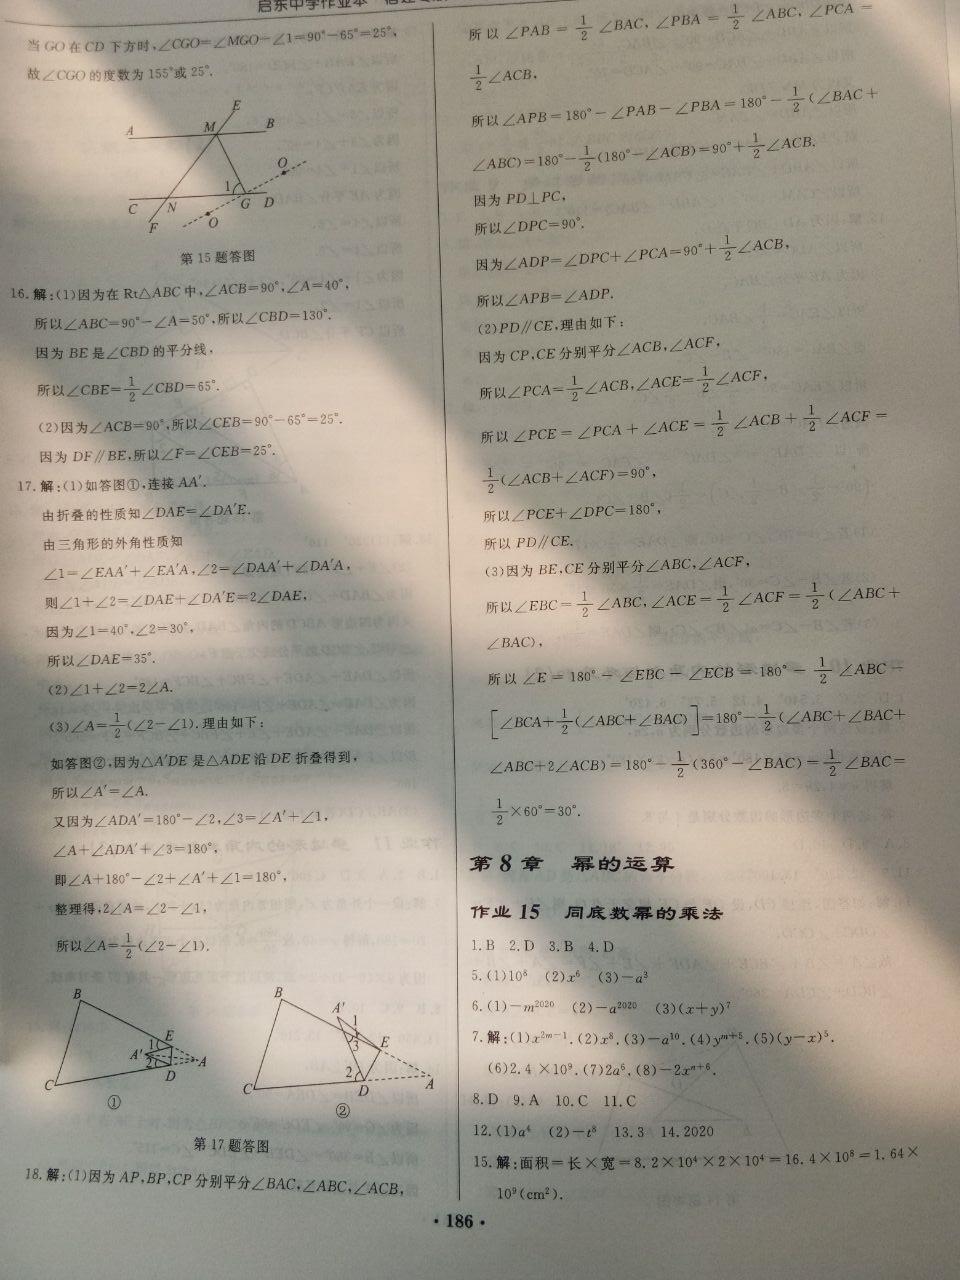 启东中学作业本
当GO在CD下方时,∠CGO=∠MGO-∠1=90°-65°=25°,
故∠CGO的度数为155°或25°.
E
A M B
O
1
C N G D
F O
第15题答图
16.解:(1)因为在Rt△ABC中,∠ACB=90°,∠A=40°,
所以∠ABC=90°-∠A=50°,所以∠CBD=130°.
因为BE是∠CBD的平分线,
所以∠CBE=1/2∠CBD=65°.
(2)因为∠ACB=90°,所以∠CEB=90°-65°=25°.
因为DF∥BE,所以∠F=∠CEB=25°.
17.解:(1)如答图①,连接AA′.
由折叠的性质知∠DAE=∠DA′E.
由三角形的外角性质知
∠1=∠EAA′+∠EA′A,∠2=∠DAA′+∠DA′A,
则∠1+∠2=∠DAE+∠DA′E=2∠DAE,
因为∠1=40°,∠2=30°,
所以∠DAE=35°.
(2)∠1+∠2=2∠A.
(3)∠A=1/2(∠2-∠1).理由如下:
如答图②,因为△A′DE是△ADE沿DE折叠得到,
所以∠A′=∠A.
又因为∠ADA′=180°-∠2,∠3=∠A′+∠1,
∠A+∠ADA′+∠3=180°,
即∠A+180°-∠2+∠A′+∠1=180°,
整理得,2∠A=∠2-∠1,
所以∠A=1/2(∠2-∠1).
B
E
1
A′ A
2
D
C
①
B
A′
1
3
E
2
C D A
②
第17题答图
18.解:(1)因为AP,BP,CP分别平分∠BAC,∠ABC,∠ACB,
所以∠PAB=1/2∠BAC,∠PBA=1/2∠ABC,∠PCA=
1/2∠ACB,
所以∠APB=180°-∠PAB-∠PBA=180°-1/2(∠BAC+
∠ABC)=180°-1/2(180°-∠ACB)=90°+1/2∠ACB.
因为PD⊥PC,
所以∠DPC=90°.
因为∠ADP=∠DPC+∠PCA=90°+1/2∠ACB,
所以∠APB=∠ADP.
(2)PD∥CE,理由如下:
因为CP,CE分别平分∠ACB,∠ACF,
所以∠PCA=1/2∠ACB,∠ACE=1/2∠ACF,
所以∠PCE=∠PCA+∠ACE=1/2∠ACB+1/2∠ACF=
1/2(∠ACB+∠ACF)=90°,
所以∠PCE+∠DPC=180°,
所以PD∥CE.
(3)因为BE,CE分别平分∠ABC,∠ACF,
所以∠EBC=1/2∠ABC,∠ACE=1/2∠ACF=1/2(∠ABC+
∠BAC),
所以∠E=180°-∠EBC-∠ECB=180°-1/2∠ABC-
[∠BCA+1/2(∠ABC+∠BAC)]=180°-1/2(∠ABC+∠BAC+
∠ABC+2∠ACB)=180°-1/2(360°-∠BAC)=1/2∠BAC=
1/2×60°=30°.
第8章 幂的运算
作业15 同底数幂的乘法
1.B 2.D 3.B 4.D
5.(1)10⁸ (2)x⁶ (3)-a³
6.(1)-m²⁰²⁰ (2)-a²⁰²⁰ (3)(x+y)⁷
7.解:(1)x²ᵐ⁻¹.(2)x⁸.(3)-a¹⁰.(4)yᵐ⁺⁵.(5)(y-x)⁵.
(6)2.4×10⁹.(7)2a⁶.(8)-2xⁿ⁺⁶.
8.D 9.A 10.C 11.C
12.(1)a⁴ (2)-t⁸ 13.3 14.2020
15.解:面积=长×宽=8.2×10⁴×2×10⁴=16.4×10⁸=1.64×
10⁹(cm²).
·186·